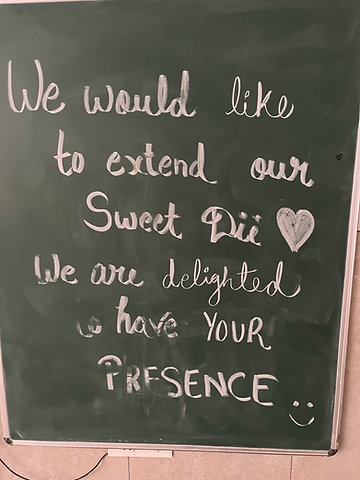 We would like
to extend our
Sweet Dii
We are delighted
to have YOUR
PRESENCE